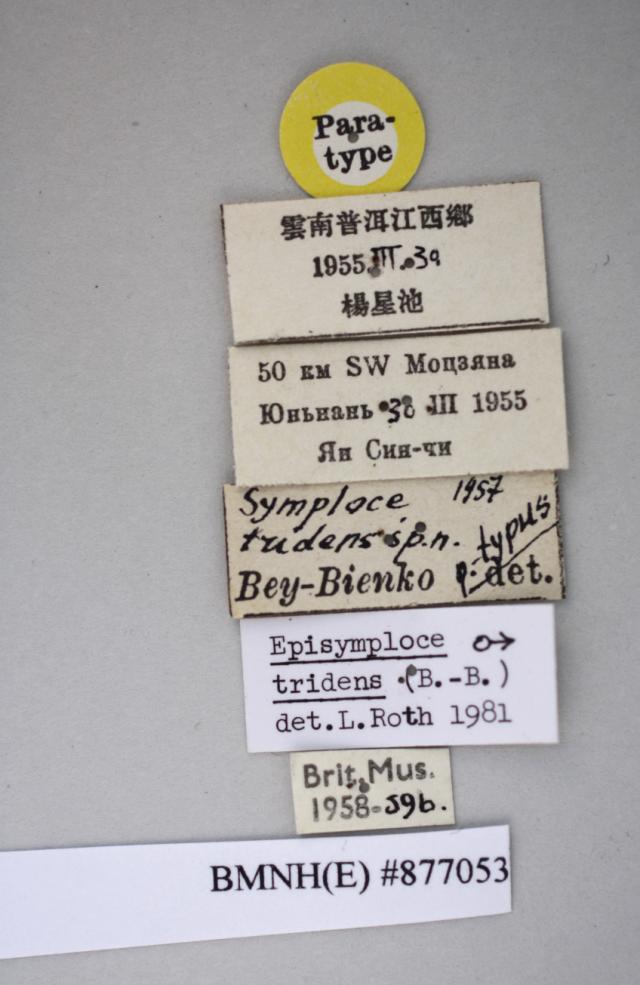 Para-
type
雲南普洱江西鄉
1955.III.30
楊星池
50 км SW Моцзяна
Юньнань 30 III 1955
Ян Син-чи
Symploce 1957
tridens sp.n.
p. typus
Bey-Bienko det.
Episymploce ♂
tridens (B.-B.)
det.L.Roth 1981
Brit.Mus.
1958-59b.
BMNH(E) #877053